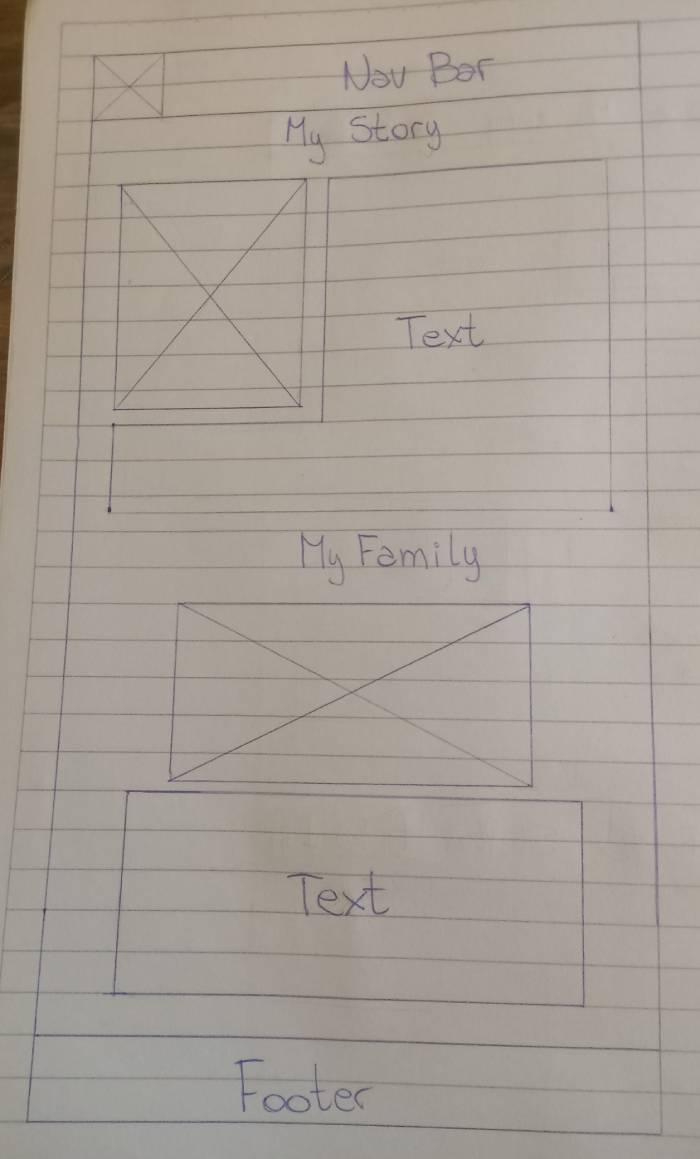 Nav Bar
My Story
Text
My Family
Text
Footer